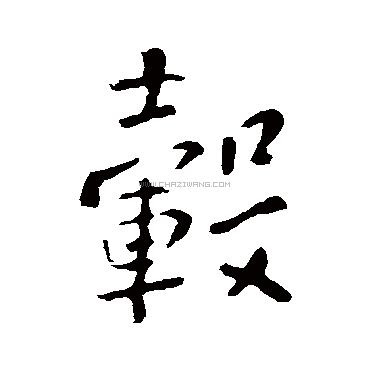 轂
WWW.CHAZIWANG.COM